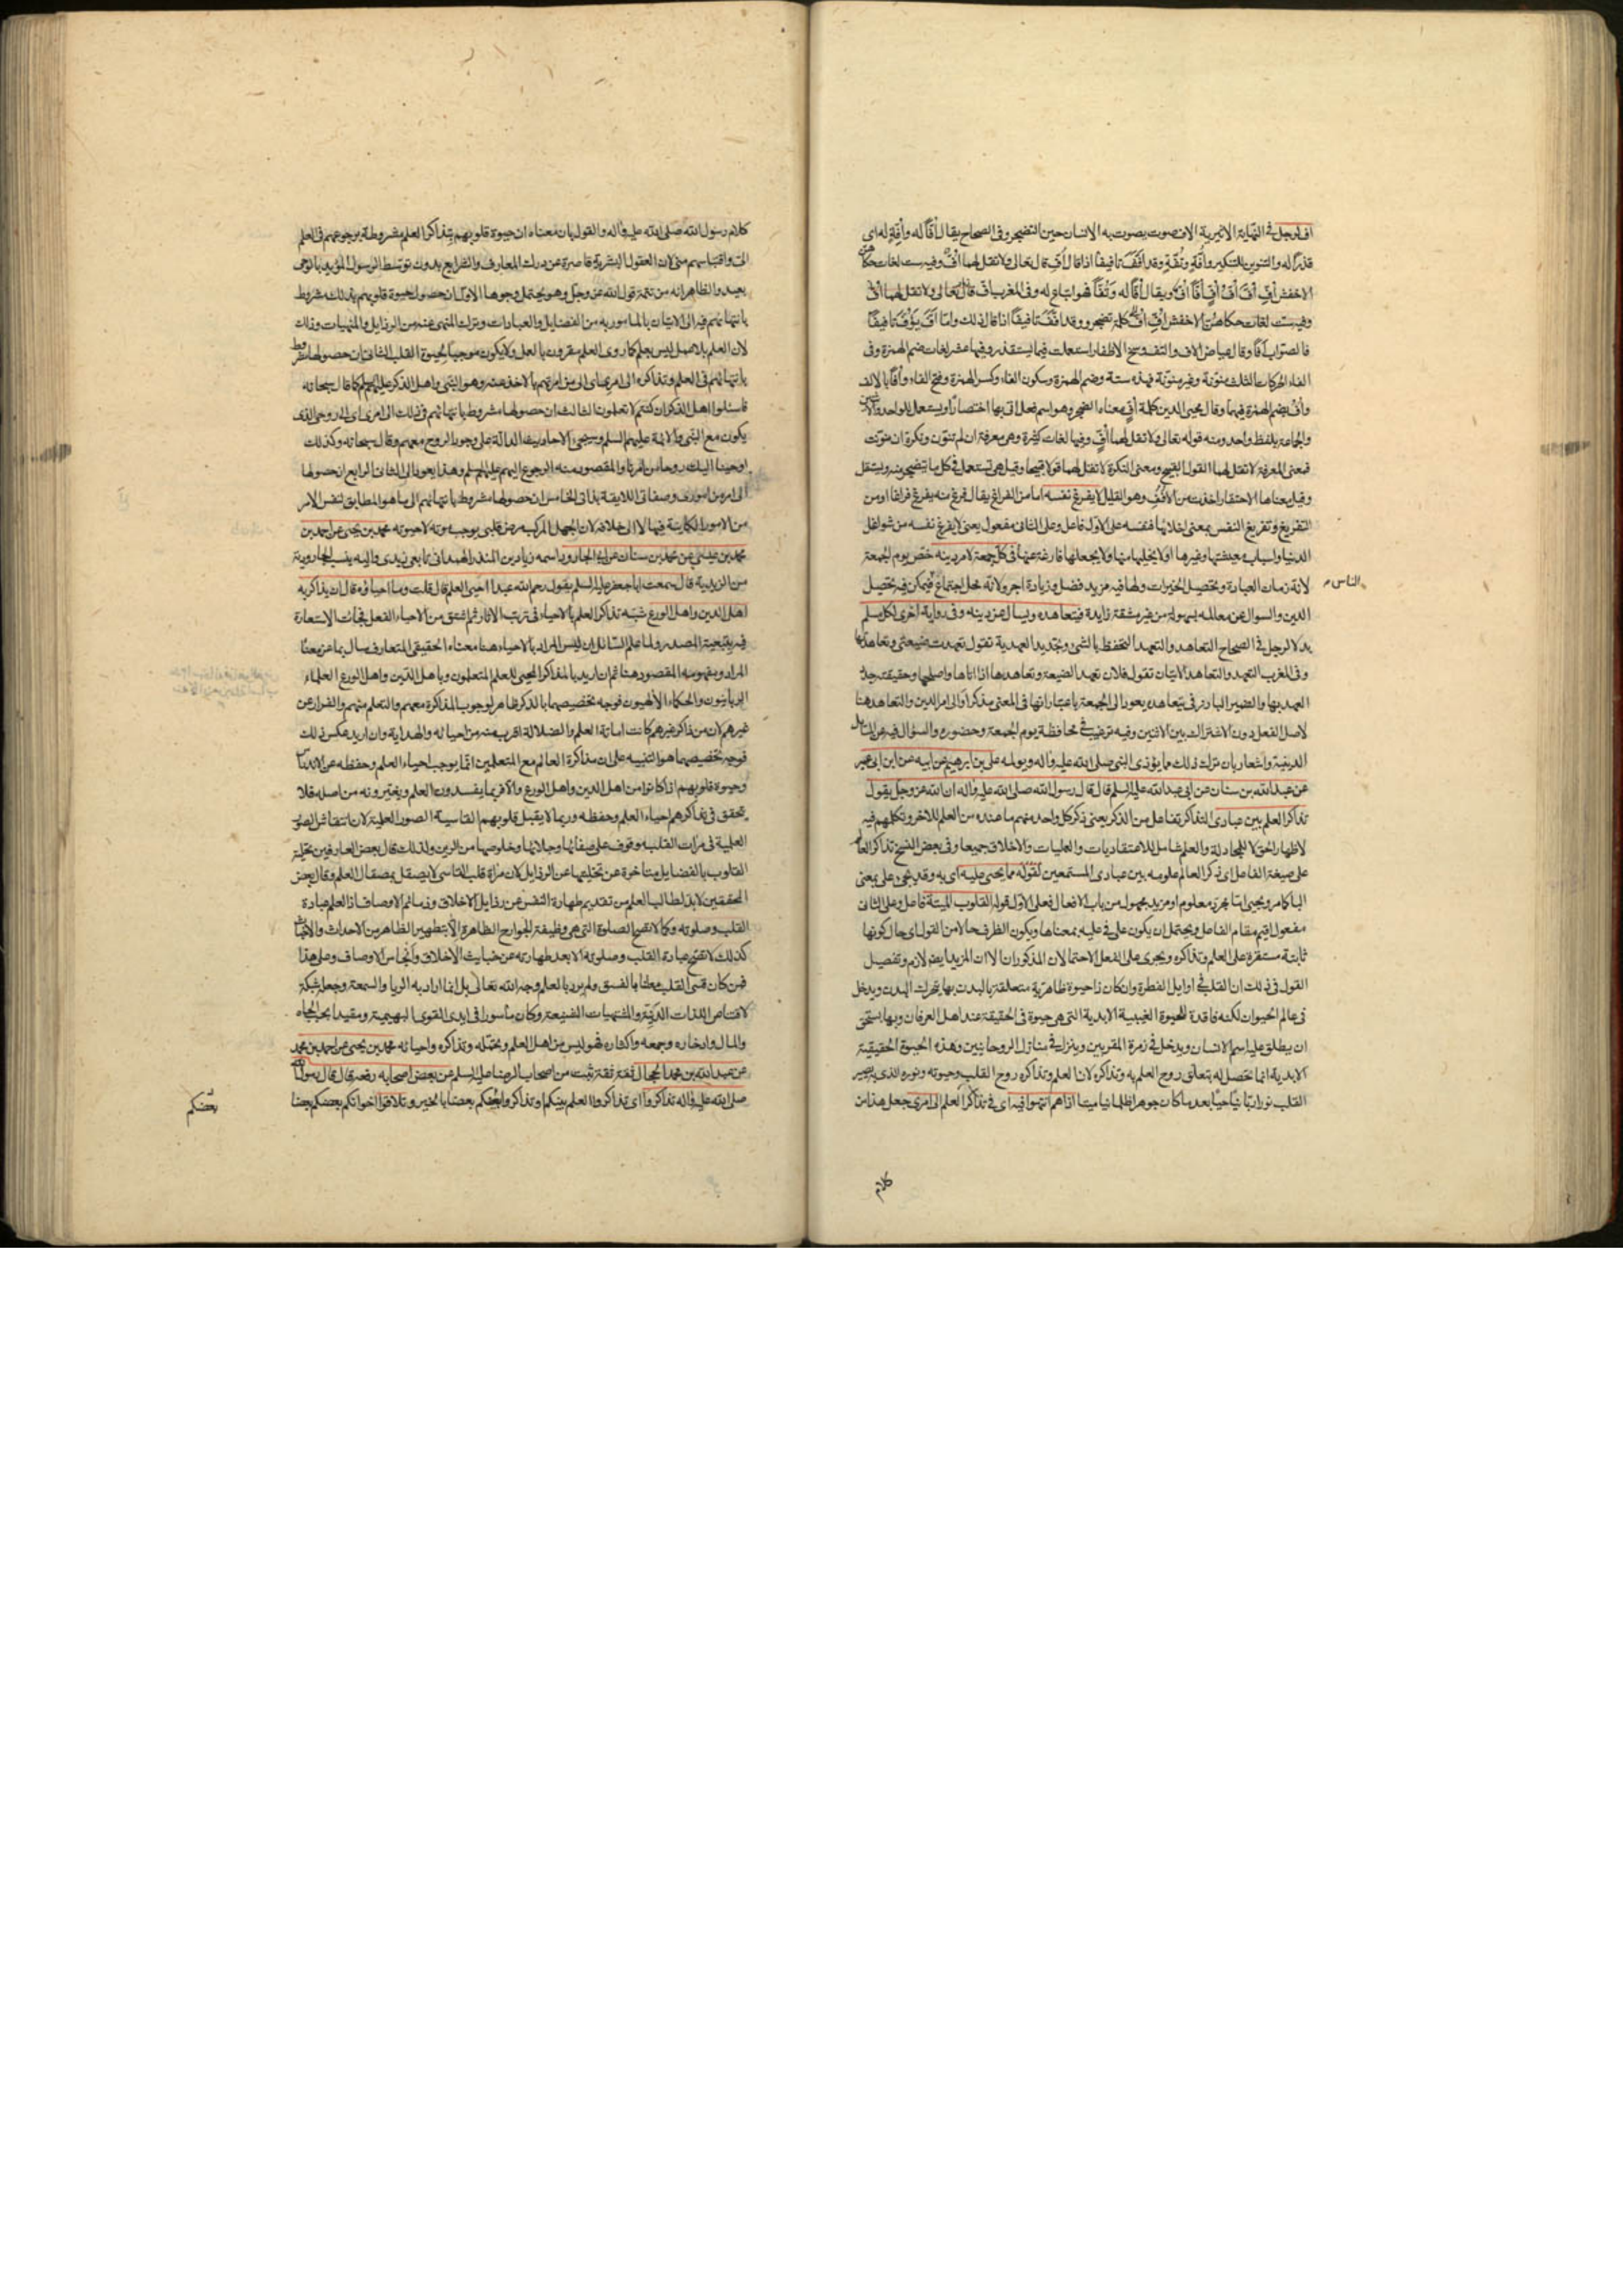 اف لرجل في النهاية الاثيرية الاف صوت يصوت به الانسان حين التضجر وفي الصحاح يقال افّاً له وافّة له اي
قذراً له والتنوين للتنكير وافّة وتفّة وقد افّف تافيفا اذا قال افّ قال تعالى ولا تقل لهما افّ وفيه ست لغات حكاها
الاخفش افِّ افَّ افُّ افٍّ افّاً افٌّ ويقال افّاً له وتفّاً وهو اتباع له وفي المغرب اف قال تعالى ولا تقل لهما اف
وفيه ست لغات حكاهن الاخفش اف اف كلمة تضجر وقد افّف تافيفا اذا قال ذلك واما افّ يؤفّ تافيفا
فالصواب افّاً وقال عياض الاف والتف وسخ الاظفار استعملت فيما يستقذر وفيها عشر لغات ضم الهمزة وفي
الفاء الحركات الثلث منوّنة وغير منوّنة فهذه ستة وضم الهمزة وسكون الفاء وكسر الهمزة وفتح الفاء وافّا بالالف
وافّه بضم الهمزة فيهما وقال محيي الدين كلمة اف معناه الضجر وهو اسم فعل اتى بها اختصارا ويستعمل للواحد والاثنين
والجماعة بلفظ واحد ومنه قوله تعالى ولا تقل لهما اف وفيها لغات كثيرة وهي معرفة ان لم تنوّن ونكرة ان نوّنت
فمعنى المعرفة لا تقل لهما القول القبيح ومعنى النكرة لا تقل لهما قولا قبيحا وقيل هي تستعمل في كل ما يتضجر منه ويستثقل
وقيل معناها الاحتقار اخذت من الافف وهو القليل لا يفرغ نفسه اما من الفراغ يقال فرغ منه يفرغ فراغا او من
التفريغ وتفريغ النفس بمعنى اخلائها فنفسه على الاول فاعل وعلى الثاني مفعول يعني لا يفرغ نفسه من شواغل
الدنيا واسباب معيشتها وغيرها او لا يخليها منها ولا يجعلها فارغة عنها في كل جمعة لامر دينه خص يوم الجمعة
لانه زمان العبادة وتحصيل الخيرات ولها فيه مزيد فضل وزيادة اجر ولانه محل اجتماع فيمكن فيه تحصيل
الناس
الدين والسوال عن معالمه بسهولة من غير مشقة زايدة فيتعاهده ويسال عن دينه وفي رواية اخرى لكل مسلم
بدلا لرجل في الصحاح التعاهد والتعهد التحفظ بالشئ وتجديد العهد به تقول تعهدت ضيعتي وتعاهدتها
وفي المغرب التعهد والتعاهد الاتيان تقول فلان تعهد الضيعة وتعاهدها اذا اتاها واصلحها وحقيقته جدد
العهد بها والضمير البارز في يتعاهده يعود الى الجمعة باعتبار انها في المعنى مذكر او الى امر الدين والتعاهد هنا
لاصل الفعل دون الاشتراك بين الاثنين وفيه ترغيب في محافظة يوم الجمعة وحضوره والسؤال فيه عن المسائل
الدينية واشعار بان ترك ذلك مما يؤذي النبي صلى الله عليه واله ويولمه علي بن ابرهيم عن ابيه عن ابن ابي عمير
عن عبدالله بن سنان عن ابي عبدالله عليه السلم قال قال رسول الله صلى الله عليه واله ان الله عز وجل يقول
تذاكر العلم بين عبادي التذاكر تفاعل من الذكر يعني ذكر كل واحد منهم ما عنده من العلم للاخر وتكلمهم فيه
لاظهار الحق لا للمجادلة والعلم شامل للاعتقاديات والعمليات والاخلاق جميعا وفي بعض النسخ تذاكر العالم
على صيغة الفاعل اي ذكر العالم علومه بين عبادي المستمعين لقوله مما يحيى عليه اي به وقد يجئ على بمعنى
الباء كما مر ويحيى اما مجرد معلوم او مزيد مجهول من باب الافعال فعلى الاول قوله القلوب الميتة فاعل وعلى الثاني
مفعول اقيم مقام الفاعل ويحتمل ان يكون على في عليه بمعناها ويكون الظرف حالا من القول اي حال كونها
ثابتة مستقرة على العلم وتذاكره ويجري على الفعل الاحتمالان المذكوران الا ان المزيد ايضا لازم وتفصيل
القول في ذلك ان القلب في اوايل الفطرة وان كان ذا حيوة ظاهرية متعلقة بالبدن بها يتحرك البدن ويدخل
في عالم الحيوان لكنه فاقدة للحيوة الغيبية الابدية التي هي حيوة في الحقيقة عند اهل العرفان وبها يستحق
ان يطلق عليه اسم الانسان ويدخل في زمرة المقربين وينزل في منازل الروحانيين وهذه الحيوة الحقيقية
الابدية انما تحصل له بتعلق روح العلم به وتذاكره لان العلم وتذاكره روح القلب وحيوته ونوره الذي به يصير
القلب نورانيا حيا بعد ما كان جوهرا ظلمانيا ميتا اذا هم انتهوا فيه اي في تذاكر العلم الى امري جعل هذا من
كلام
كلام رسول الله صلى الله عليه واله والقول بان معناه ان حيوة قلوبهم بتذاكر العلم مشروطة برجوعهم في العلم
الي واقتباسهم مني لان العقول البشرية قاصرة عن درك المعارف والشرايع بدون توسط الرسول المؤيد بالوحي
بعيد والظاهر انه من تتمة قول الله عز وجل وهو يحتمل وجوها الاول ان حصول حيوة قلوبهم بذلك مشروط
بانتهائهم فيه الى الاتيان بالمامور به من الفضايل والعبادات وترك المنهي عنه من الرذايل والمنهيات وذلك
لان العلم بلا عمل ليس بعلم كما روى العلم مقرون بالعمل ولا يكون موجبا لحيوة القلب الثاني ان حصولها مشروط
بانتهائهم في العلم وتذاكره الى امري اي الى من امرتهم بالاخذ عنه وهو النبي واهل الذكر عليهم السلم كما قال سبحانه
فاسئلوا اهل الذكر ان كنتم لا تعلمون الثالث ان حصولها مشروط بانتهائهم في ذلك الى امري اي الى روحي الذي
يكون مع النبي والائمة عليهم السلم وسيجئ الاحاديث الدالة على وجود الروح معهم وقال سبحانه وكذلك
اوحينا اليك روحا من امرنا والمقصود منه الرجوع اليهم عليهم السلم وهذا يعود الى الثاني الرابع ان حصولها
الى امر من اموري وصفاتي اللايقة بذاتي الخامس ان حصولها مشروط بانتهائهم الى ما هو المطابق لنفس الامر
من الامور الكاينة فيها لا الى خلافه لان الجهل المركب مرض قلبي يوجب موته لا حيوته محمد بن يحيى عن احمد بن
محمد بن عيسى عن محمد بن سنان عن ابي الجارود اسمه زياد بن المنذر الهمداني تابعي زيدي واليه ينسب الجارودية
من الزيدية قال سمعت ابا جعفر عليه السلم يقول رحم الله عبدا احيى العلم قال قلت وما احياؤه قال ان يذاكر به
اهل الدين واهل الورع شبه تذاكر العلم بالاحياء في ترتب الاثار ثم اشتق من الاحياء الفعل فجاءت الاستعارة
فيه بتبعية المصدر ولما علم السائل ان ليس المراد بالاحياء هنا معناه الحقيقي المتعارف سال بما عن معناه
المراد ومفهومه المقصود هنا ثم ان اريد بالمذاكر المحيي للعلم المتعلمون وباهل الدين واهل الورع العلماء
الربانيون والحكماء الالهيون فوجه تخصيصهما بالذكر ظاهر لوجوب المذاكرة معهم والتعلم منهم والفرار عن
غيرهم لان من ذاكر غيرهم كانت اماتة العلم والضلالة اقرب منه من احيائه والهداية وان اريد عكس ذلك
فوجه تخصيصهما هو التنبيه على ان مذاكرة العالم مع المتعلمين انما يوجب احياء العلم وحفظه عن الاندراس
وحيوة قلوبهم اذا كانوا من اهل الدين واهل الورع والا فربما يفسدون العلم ويغيرونه من اصله فلا
يتحقق في تذاكرهم احياء العلم وحفظه وربما لا يقبل قلوبهم القاسية الصور العلمية لان انتقاش الصور
العلمية في مرات القلب موقوف على صفائها وجلائها وخلوصها من الرين ولذلك قال بعض العارفين تحلية
القلوب بالفضايل متاخرة عن تخليتها عن الرذايل لان مراة قلب القاسي لا يصقل بمصقال العلم وقال بعض
المحققين لا بد لطالب العلم من تقديم طهارة النفس عن رذايل الاخلاق وذمائم الاوصاف اذ العلم عبادة
القلب وصلوته وكما لا تصح الصلوة التي هي وظيفة الجوارح الظاهرة الا بتطهير الظاهر من الاحداث والاخباث
كذلك لا تصح عبادة القلب وصلوته الا بعد طهارته عن خبايث الاخلاق وانجاس الاوصاف وعلى هذا
فمن كان قسي القلب معلنا بالفسق ولم يرد بالعلم وجه الله تعالى بل انما اراد به الريا والسمعة وجعله شبكة
لاقتناص اللذات الدنية والمشتهيات الشنيعة وكان ماسورا في ايدي القوى البهيمية ومقيدا بحب الجاه
والمال وادخاره وجمعه واكثاره فهو ليس من اهل العلم وتحمله وتذاكره واحيائه محمد بن يحيى عن احمد بن محمد
عن عبدالله بن محمد الحجال ثقة ثقة ثبت من اصحاب الرضا عليه السلم عن بعض اصحابه رفعه قال قال رسول الله
صلى الله عليه واله تذاكروا اي تذاكروا العلم بينكم او تذاكروا بعضكم بعضا بالخير وتلاقوا اخوانكم بعضكم بعضا
بعضكم